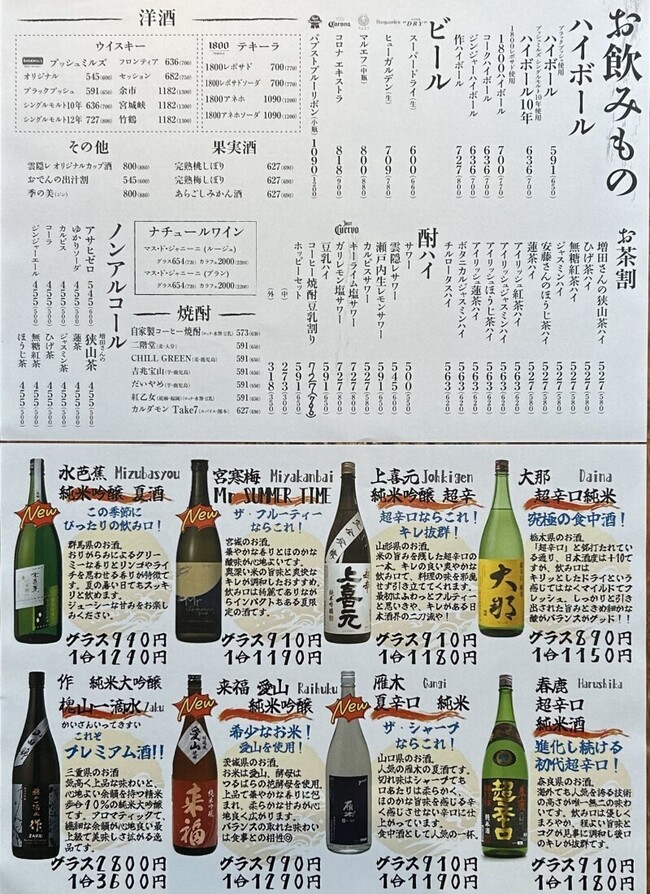 お飲みもの
ハイボール
ブラックブッシュ使用
ハイボール 591(650)
ブッシュミルズ シングルモルト10年使用
ハイボール10年 636(700)
1800レポサド使用
1800ハイボール 700(770)
コークハイボール 636(700)
ジンジャーハイボール 636(700)
作ハイボール 727(800)
ビール
スーパードライ(生) 600(660)
ヒューガルデン(生) 709(780)
マルエフ(中瓶) 800(880)
コロナ エキストラ 818(900)
パブストブルーリボン(小瓶) 1090(1200)
洋酒
ウイスキー
ブッシュミルズ
オリジナル 545(600)
ブラックブッシュ 591(650)
シングルモルト10年 636(700)
シングルモルト12年 727(800)
フロンティア 636(700)
セッション 682(750)
余市 1182(1300)
宮城峡 1182(1300)
竹鶴 1182(1300)
テキーラ
1800レポサド 700(770)
1800レポサドソーダ 700(770)
1800アネホ 1090(1200)
1800アネホソーダ 1090(1200)
その他
雲隠レオリジナルカップ酒 800(880)
おでんの出汁割 545(600)
季の美(ジン) 800(880)
果実酒
完熟桃しぼり 627(690)
完熟梅しぼり 627(690)
あらごしみかん酒 627(690)
お茶割
増田さんの狭山茶ハイ 527(580)
ひげ茶ハイ 527(580)
無糖紅茶ハイ 527(580)
ジャスミンハイ 527(580)
安藤さんのほうじ茶ハイ 527(580)
蓮茶ハイ 527(580)
アイリッシュ紅茶ハイ 563(620)
アイリッシュジャスミンハイ 563(620)
アイリッシュほうじ茶ハイ 563(620)
アイリッシュ蓮茶ハイ 563(620)
ボタニカルジャスミンハイ 563(620)
チルロータスハイ 563(620)
酎ハイ
サワー 500(550)
雲隠レサワー 545(600)
瀬戸内生レモンサワー 590(650)
カルピスサワー 527(580)
キーライム塩サワー 727(800)
ガリレモン塩サワー 727(800)
豆乳ハイ 591(650)
コーヒー焼酎豆乳割り 727(800)
ホッピーセット 591(650)
(中) 273(300)
(外) 318(350)
ナチュールワイン
マス・ド・ジャニーニ (ルージュ)
グラス654(720) カラフェ2000(2200)
マス・ド・ジャニーニ (ブラン)
グラス654(720) カラフェ2000(2200)
焼酎
自家製コーヒー焼酎(ロック・水割・豆乳) 573(630)
二階堂(麦・大分) 591(650)
CHILL GREEN(麦・鹿児島) 591(650)
吉兆宝山(芋・鹿児島) 591(650)
だいやめ(芋・鹿児島) 591(650)
紅乙女(胡麻・福岡)(ロック・水割・ソーダ) 591(650)
カルダモン Take7(スパイス・熊本) 627(690)
ノンアルコール
アサヒゼロ 545(600)
ゆかりソーダ 455(500)
カルピス 455(500)
コーラ 455(500)
ジンジャーエール 455(500)
増田さんの狭山茶 455(500)
蓮茶 455(500)
ジャスミン茶 455(500)
ひげ茶 455(500)
無糖紅茶 455(500)
ほうじ茶 455(500)
水芭蕉 Mizubasyou
純米吟醸 夏酒
New
この季節に
ぴったりの飲み口!
群馬県のお酒。
おりがらみによるクリー
ミーな香りとリンゴやライ
チを思わせる香りが特徴で
す。夏の暑い日でもスッキ
リと飲めます。
ジューシーな甘みをお楽し
みください。
グラス990円
1合1290円
宮寒梅 Miyakanbai
Mr SUMMER TIME
New
ザ・フルーティー
ならこれ!
宮城のお酒。
華やかな香りとほのかな
酸味が心地よいです。
奥深い米の旨味と爽快な
キレが調和したおすすめ。
飲み口は綺麗でありながら
インパクトもある夏限定の酒です。
グラス910円
1合1190円
上喜元 Johkigen
純米吟醸 超辛
超辛口ならこれ!
キレ抜群!
山形県のお酒。
米の旨みを残した超辛口の
一本。キレの良い爽やかな
飲み口で、料理の味を邪魔
せず引き立ててくれます。
最初はふわっとフルティー
と思いきや、キレがある日
本酒界の二刀流や!
グラス910円
1合1180円
大那 Daina
超辛口純米
究極の食中酒!
栃木県のお酒。
「超辛口」と銘打たれてい
る通り、日本酒度は+10で
すが、飲み口は
キリッとしたドライという
感じではなくマイルドでフ
レッシュ。しっかりと引き
出された旨みときめ細やか
な酸がバランスがグッド!!
グラス890円
1合1150円
作 純米大吟醸
槐山一滴水 Zaku
かいざんいってきすい
これぞ
プレミアム酒!!
三重県のお酒。
気高く上品な味わいと、
心地よい余韻を持つ精米
歩合40%の純米大吟醸
です。アロマティックで、
繊細な余韻が心地良い最
上級の美味しさ溢れる逸
品です。
グラス2800円
1合3600円
来福 愛山 Raihuku
純米吟醸
New
希少なお米!
愛山を使用!
茨城県のお酒。
お米は愛山、酵母は
つるばらの花酵母を使用。
上品で華やかな香りに包
まれ、柔らかな甘みが心地
良く広がります。
バランスの取れた味わい
は食事との相性◎
グラス990円
1合1290円
雁木 Gangi
夏辛口 純米
New
ザ・シャープ
ならこれ!
山口県のお酒。
人気の雁木の夏酒です。
切れ味はシャープでも
口あたりは柔らかく、
ほのかな旨味を感じる辛
く感じさせない辛口に仕
上がっています。
食中酒として人気の一杯。
グラス910円
1合1190円
春鹿 Harushika
超辛口
純米酒
進化し続ける
初代超辛口!
奈良県のお酒。
海外でも人気を誇る技術
の高さが唯一無二の味わ
いです。飲み口は優しく
まろやか、程よい旨味と
コクが見事に調和し後口
のキレが抜群です。
グラス910円
1合1180円